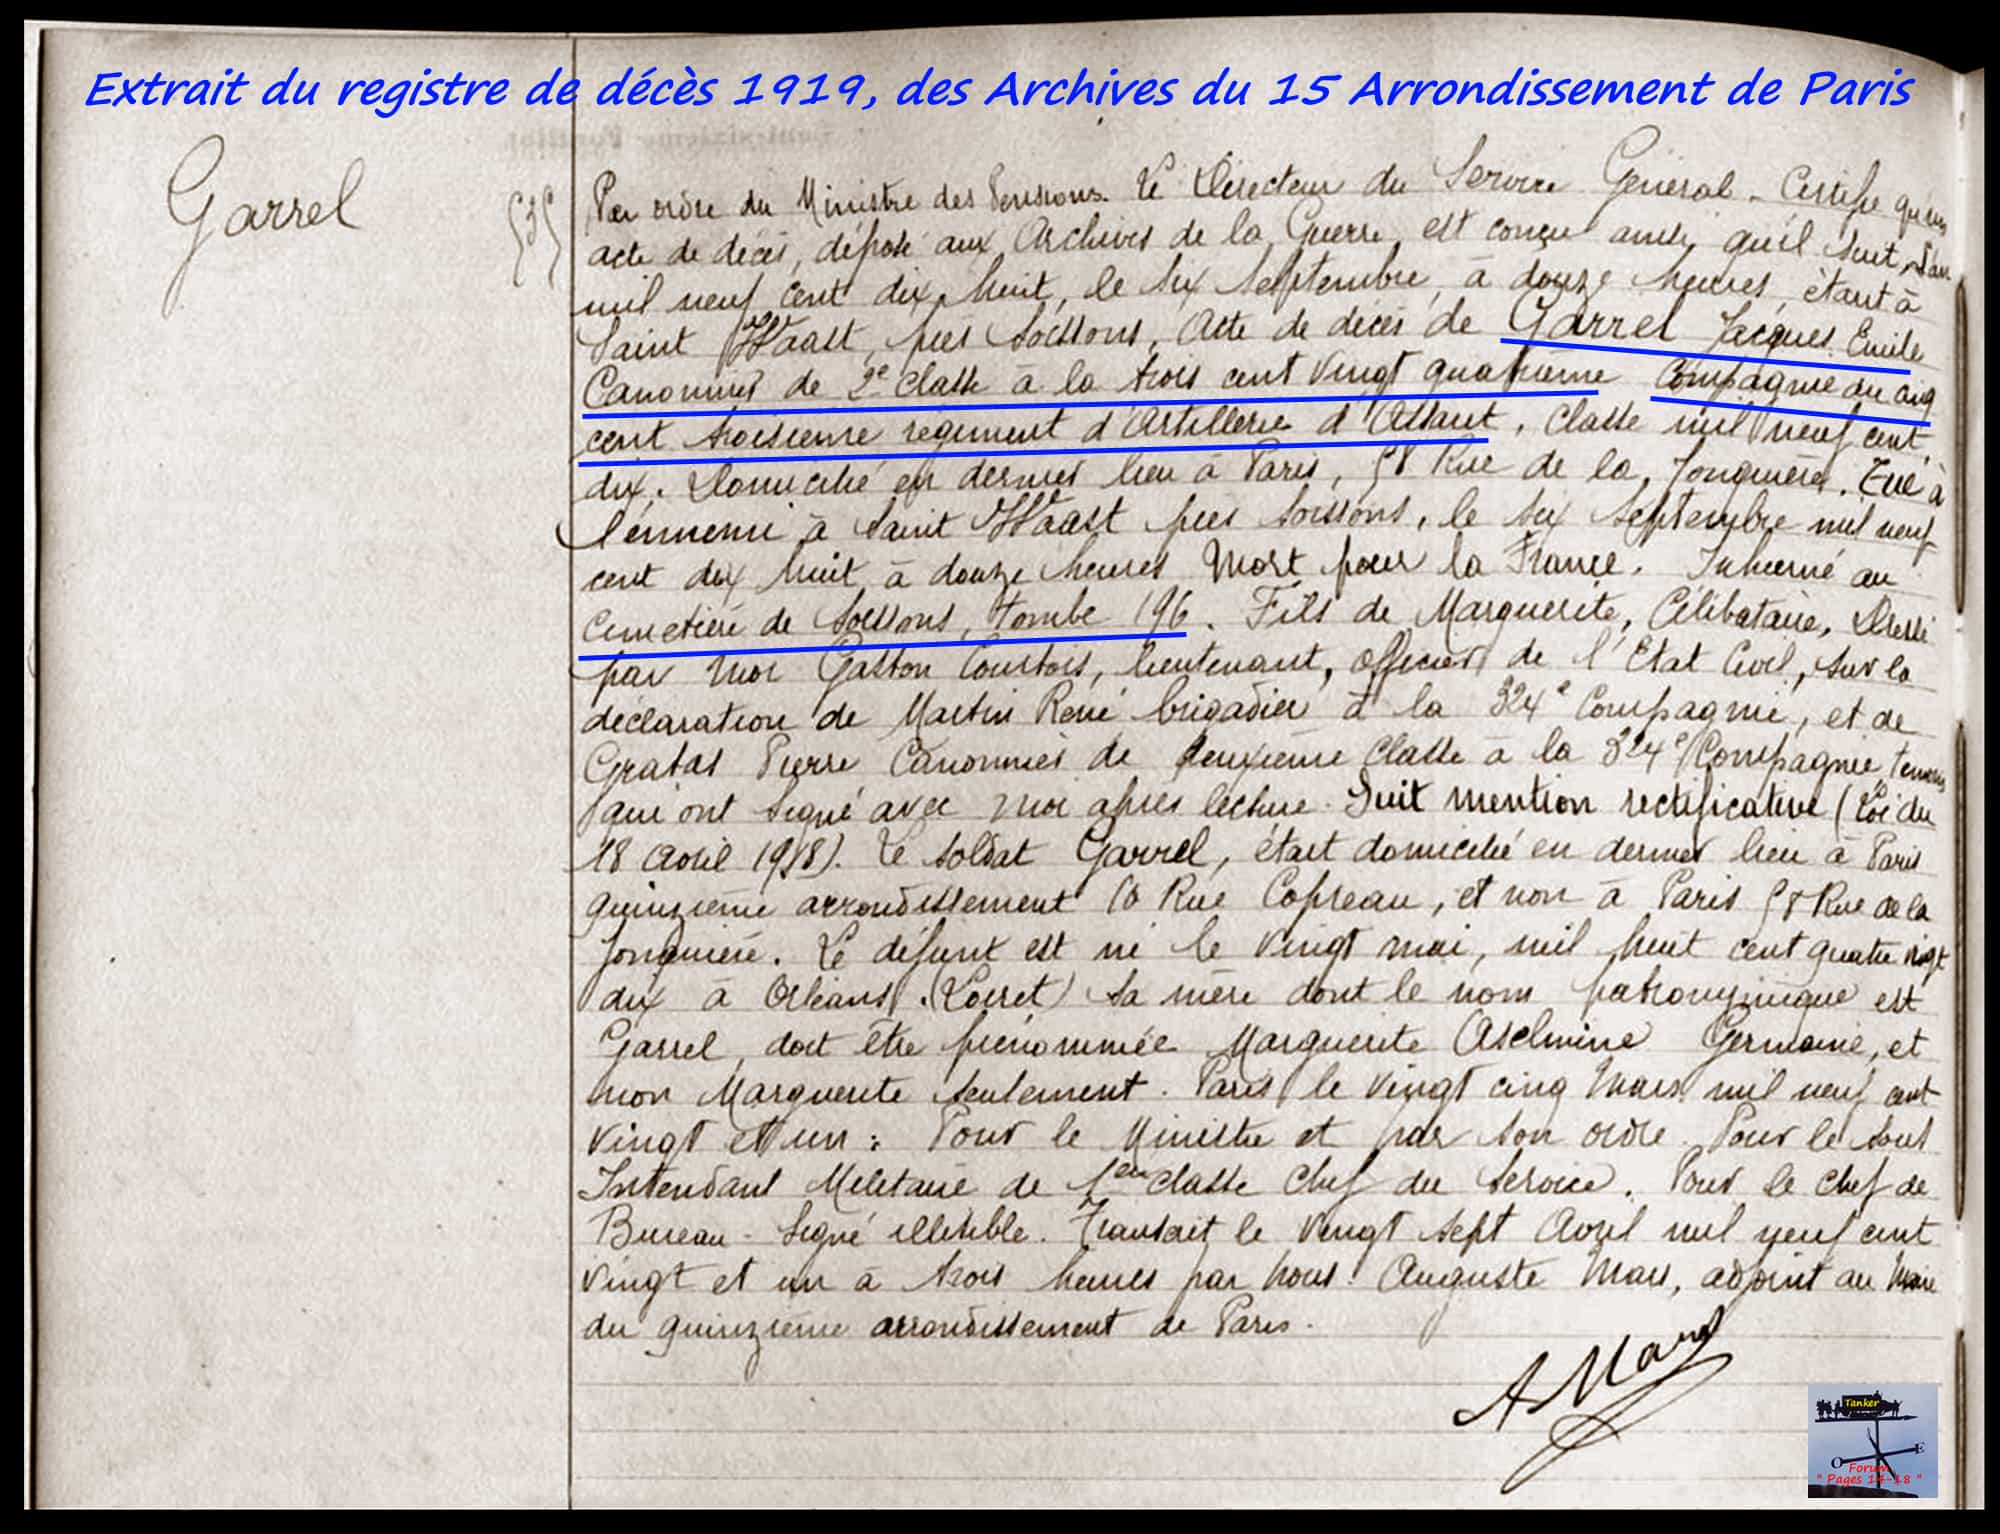 Extrait du registre de décès 1919, des Archives du 15 Arrondissement de Paris
Garrel
Par ordre du Ministre des Pensions. Le Directeur du Service Général - Certifie qu'un
acte de décès, déposé aux Archives de la Guerre, est conçu ainsi qu'il suit, L'an
mil neuf cent dix huit, le six Septembre, à douze heures, étant à
Saint Waast, près Soissons, Acte de décès de Garrel Jacques Emile
Canonnier de 2e classe à la trois cent vingt quatrième Compagnie du cinq
cent troisième régiment d'Artillerie d'Assaut, classe mil neuf cent
dix. Domicilié en dernier lieu à Paris, 58 Rue de la Jonquière. Tué à
l'ennemi à Saint Waast près Soissons, le six Septembre mil neuf
cent dix huit à douze heures Mort pour la France. Inhumé au
Cimetière de Soissons, tombe 196. Fils de Marguerite, Célibataire, Dressé
par moi Gaston Courtois, lieutenant, officier de l'Etat Civil, sur la
déclaration de Martin René brigadier à la 324e Compagnie, et de
Pierre Canonnier de deuxième classe à la 324e Compagnie témoins
qui ont signé avec moi après lecture. Suit mention rectificative (Loi du
18 avril 1918). Le soldat Garrel, était domicilié en dernier lieu à Paris
quinzième arrondissement 10 Rue Copreau, et non à Paris 58 Rue de la
Jonquière. Le défunt est né le vingt mai, mil huit cent quatre vingt
dix à Orléans (Loiret) Sa mère dont le nom patronymique est
Garrel, doit être prénommée Marguerite Germaine, et
non Marguerite seulement. Paris le vingt cinq Mars mil neuf cent
vingt et un : Pour le Ministre et par son ordre. Pour le Sous
Intendant Militaire de 1ere classe Chef du Service. Pour le Chef de
Bureau - Signé illisible. Transcrit le vingt sept Avril mil neuf cent
vingt et un à trois heures par nous. Auguste Mary, adjoint au Maire
du quinzième arrondissement de Paris.
A Mary
Tanker
O E
Forum
" Pages 14-18 "